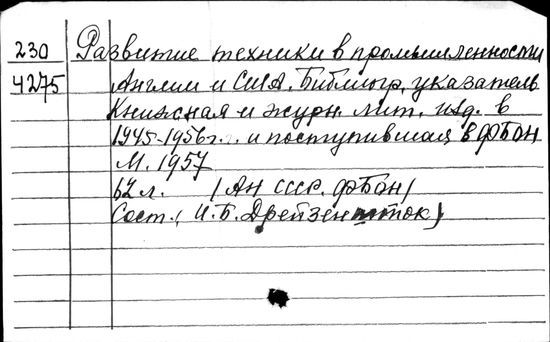 230 Развитие техники в промышленности
4275 Англии и США. Библиогр. указатель
Книжная и журн. лит. изд. в
1945-1956г. и поступившая в ФБОН
М. 1957
62 л. (АН СССР. ФБОН)
Сост.: И.Б. Дрейзеншток)